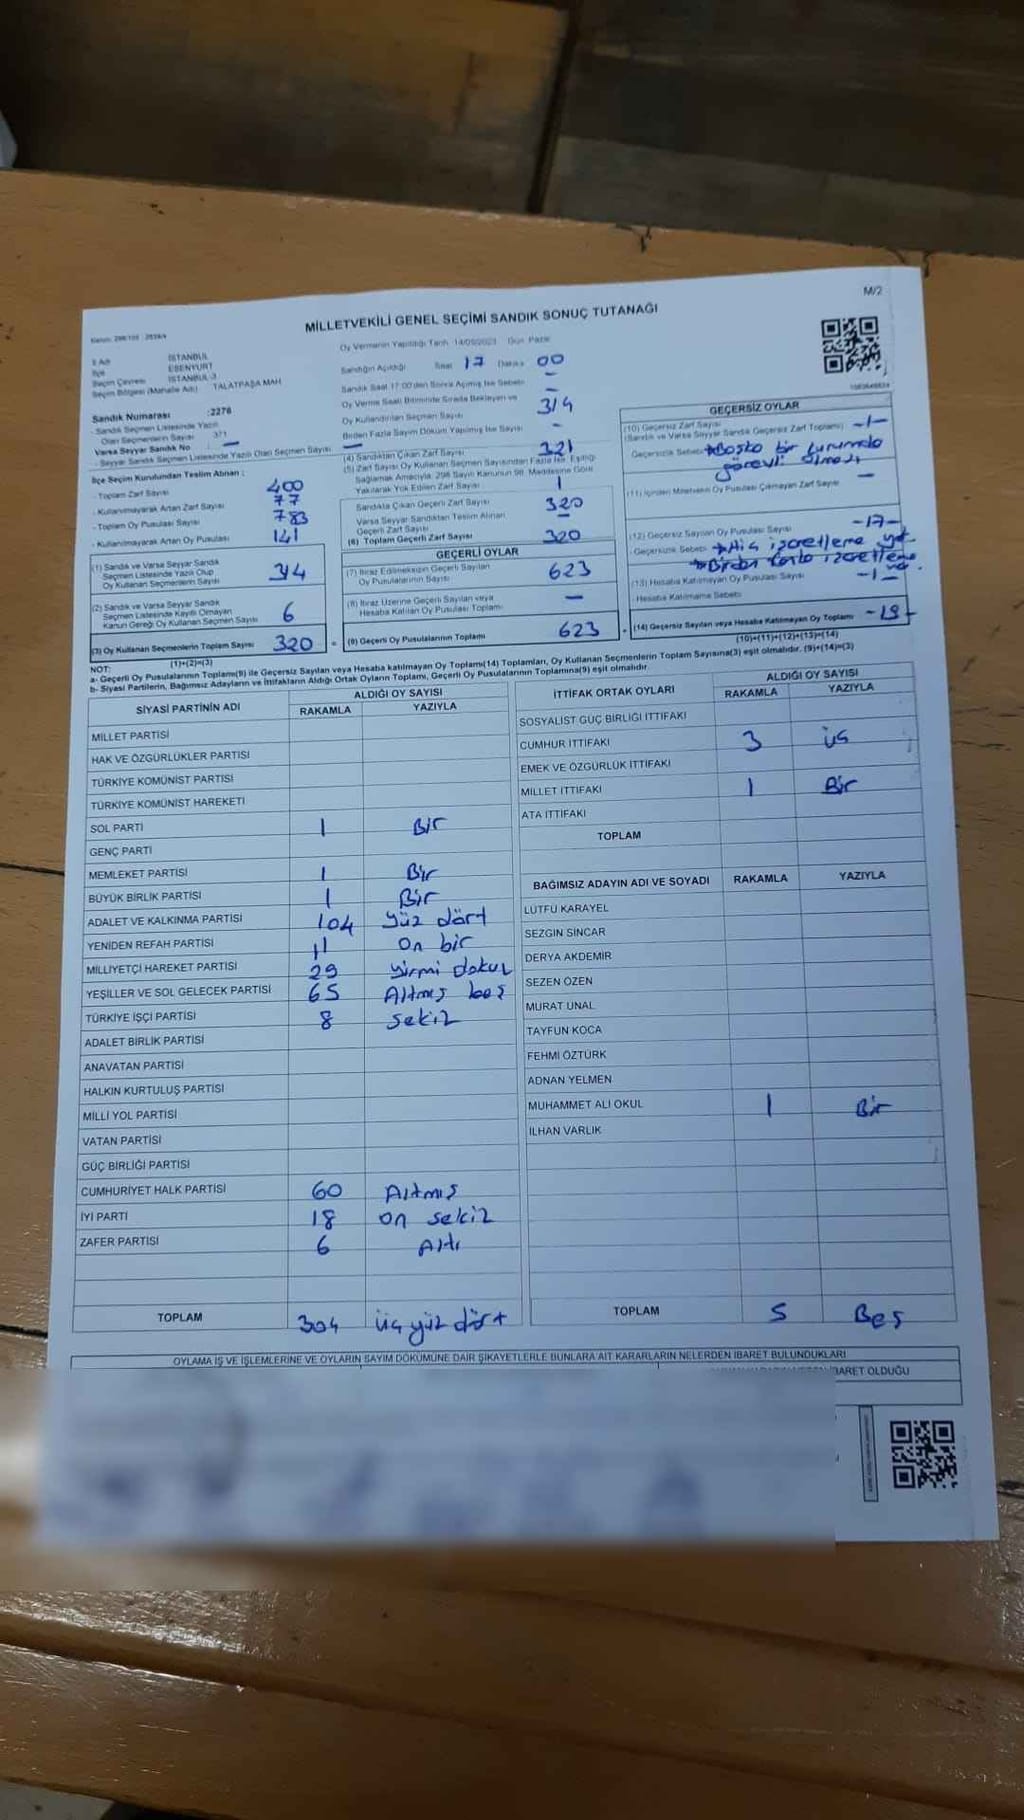 M/2
MİLLETVEKİLİ GENEL SEÇİMİ SANDIK SONUÇ TUTANAĞI
Oy Vermenin Yapıldığı Tarih 14/05/2023 Gün Pazar
İl Adı İSTANBUL
İlçe ESENYURT
Seçim Çevresi İSTANBUL-3
Seçim Bölgesi (Mahalle Adı) TALATPAŞA MAH
Sandık Numarası :2276
- Sandık Seçmen Listesinde Yazılı
Olan Seçmenlerin Sayısı 371
Varsa Seyyar Sandık No —
- Seyyar Sandık Seçmen Listesinde Yazılı Olan Seçmen Sayısı —
İlçe Seçim Kurulundan Teslim Alınan :
- Toplam Zarf Sayısı 400
- Kullanılmayarak Artan Zarf Sayısı 77
- Toplam Oy Pusulası Sayısı 783
- Kullanılmayarak Artan Oy Pusulası 141
(1) Sandık ve Varsa Seyyar Sandık
Seçmen Listesinde Yazılı Olup
Oy Kullanan Seçmenlerin Sayısı 314
(2) Sandık ve Varsa Seyyar Sandık
Seçmen Listesinde Kayıtlı Olmayan
Kanun Gereği Oy Kullanan Seçmen Sayısı 6
(3) Oy Kullanan Seçmenlerin Toplam Sayısı 320
(1)+(2)=(3)
Sandığın Açıldığı Saat 17 Dakika 00
Sandık Saat 17:00'den Sonra Açılmış İse Sebebi —
Oy Verme Saati Bitiminde Sırada Bekleyen ve —
Oy Kullandırılan Seçmen Sayısı 314
Birden Fazla Sayım Döküm Yapılmış İse Sayısı -
(4) Sandıktan Çıkan Zarf Sayısı 321
(5) Zarf Sayısı Oy Kullanan Seçmen Sayısından Fazla İse, Eşitliği
Sağlamak Amacıyla, 298 Sayılı Kanunun 98. Maddesine Göre
Yakılarak Yok Edilen Zarf Sayısı 1
Sandıkta Çıkan Geçerli Zarf Sayısı 320
Varsa Seyyar Sandıktan Teslim Alınan
Geçerli Zarf Sayısı —
(6) Toplam Geçerli Zarf Sayısı 320
GEÇERLİ OYLAR
(7) İtiraz Edilmeksizin Geçerli Sayılan
Oy Pusulalarının Sayısı 623
(8) İtiraz Üzerine Geçerli Sayılan veya
Hesaba Katılan Oy Pusulası Toplamı —
(9) Geçerli Oy Pusulalarının Toplamı 623
GEÇERSİZ OYLAR
(10) Geçersiz Zarf Sayısı
(Sandık ve Varsa Seyyar Sandık Geçersiz Zarf Toplamı) -1-
Geçersizlik Sebebi Başka bir kurumda
görevli olması
(11) İçinden Milletvekili Oy Pusulası Çıkmayan Zarf Sayısı —
(12) Geçersiz Sayılan Oy Pusulası Sayısı -17-
Geçersizlik Sebebi → Hiç işaretleme yok
→ Birden fazla işaretleme var.
(13) Hesaba Katılmayan Oy Pusulası Sayısı -1-
Hesaba Katılmama Sebebi
(14) Geçersiz Sayılan veya Hesaba Katılmayan Oy Toplamı -19-
(10)+(11)+(12)+(13)=(14)
NOT:
a- Geçerli Oy Pusulalarının Toplamı(9) ile Geçersiz Sayılan veya Hesaba katılmayan Oy Toplamı(14) Toplamları, Oy Kullanan Seçmenlerin Toplam Sayısına(3) eşit olmalıdır. (9)+(14)=(3)
b- Siyasi Partilerin, Bağımsız Adayların ve İttifakların Aldığı Ortak Oyların Toplamı, Geçerli Oy Pusulalarının Toplamına(9) eşit olmalıdır
SİYASİ PARTİNİN ADI ALDIĞI OY SAYISI
RAKAMLA YAZIYLA
MİLLET PARTİSİ
HAK VE ÖZGÜRLÜKLER PARTİSİ
TÜRKİYE KOMÜNİST PARTİSİ
TÜRKİYE KOMÜNİST HAREKETİ
SOL PARTİ 1 Bir
GENÇ PARTİ
MEMLEKET PARTİSİ 1 Bir
BÜYÜK BİRLİK PARTİSİ 1 Bir
ADALET VE KALKINMA PARTİSİ 104 yüz dört
YENİDEN REFAH PARTİSİ 11 On bir
MİLLİYETÇİ HAREKET PARTİSİ 29 yirmi dokuz
YEŞİLLER VE SOL GELECEK PARTİSİ 65 Altmış beş
TÜRKİYE İŞÇİ PARTİSİ 8 sekiz
ADALET BİRLİK PARTİSİ
ANAVATAN PARTİSİ
HALKIN KURTULUŞ PARTİSİ
MİLLİ YOL PARTİSİ
VATAN PARTİSİ
GÜÇ BİRLİĞİ PARTİSİ
CUMHURİYET HALK PARTİSİ 60 Altmış
İYİ PARTİ 18 on sekiz
ZAFER PARTİSİ 6 Altı
TOPLAM 304 üç yüz dört
İTTİFAK ORTAK OYLARI ALDIĞI OY SAYISI
RAKAMLA YAZIYLA
SOSYALİST GÜÇ BİRLİĞİ İTTİFAKI
CUMHUR İTTİFAKI 3 üç
EMEK VE ÖZGÜRLÜK İTTİFAKI
MİLLET İTTİFAKI 1 Bir
ATA İTTİFAKI
TOPLAM
BAĞIMSIZ ADAYIN ADI VE SOYADI RAKAMLA YAZIYLA
LÜTFÜ KARAYEL
SEZGİN SİNCAR
DERYA AKDEMİR
SEZEN ÖZEN
MURAT ÜNAL
TAYFUN KOCA
FEHMİ ÖZTÜRK
ADNAN YELMEN
MUHAMMET ALİ OKUL 1 Bir
İLHAN VARLIK
TOPLAM 5 Beş
OYLAMA İŞ VE İŞLEMLERİNE VE OYLARIN SAYIM DÖKÜMÜNE DAİR ŞİKAYETLERLE BUNLARA AİT KARARLARIN NELERDEN İBARET BULUNDUKLARI
İBARET OLDUĞU